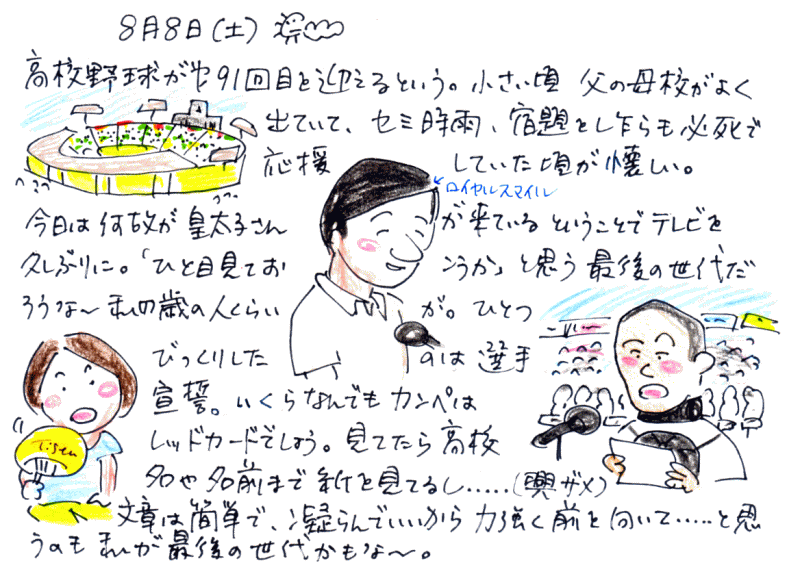 8月8日(土)
高校野球が早91回目を迎えるという。小さい頃 父の母校がよく
出ていて、セミ時雨、宿題をし乍らも必死で
応援していた頃が懐しい。
ロイヤルスマイル
今日は何故か皇太子さんが来ているということでテレビを
久しぶりに。「ひと目見ておこうか」と思う最後の世代だ
ろうな〜私の歳の人くらいが。ひとつ
びっくりしたのは選手
宣誓。いくらなんでもカンペは
レッドカードでしょう。見てたら高校
名や名前まで紙を見てるし.....(興ザメ)
文章は簡単で、凝らんでいいから力強く前を向いて.....と思
うのも私が最後の世代かもな〜。